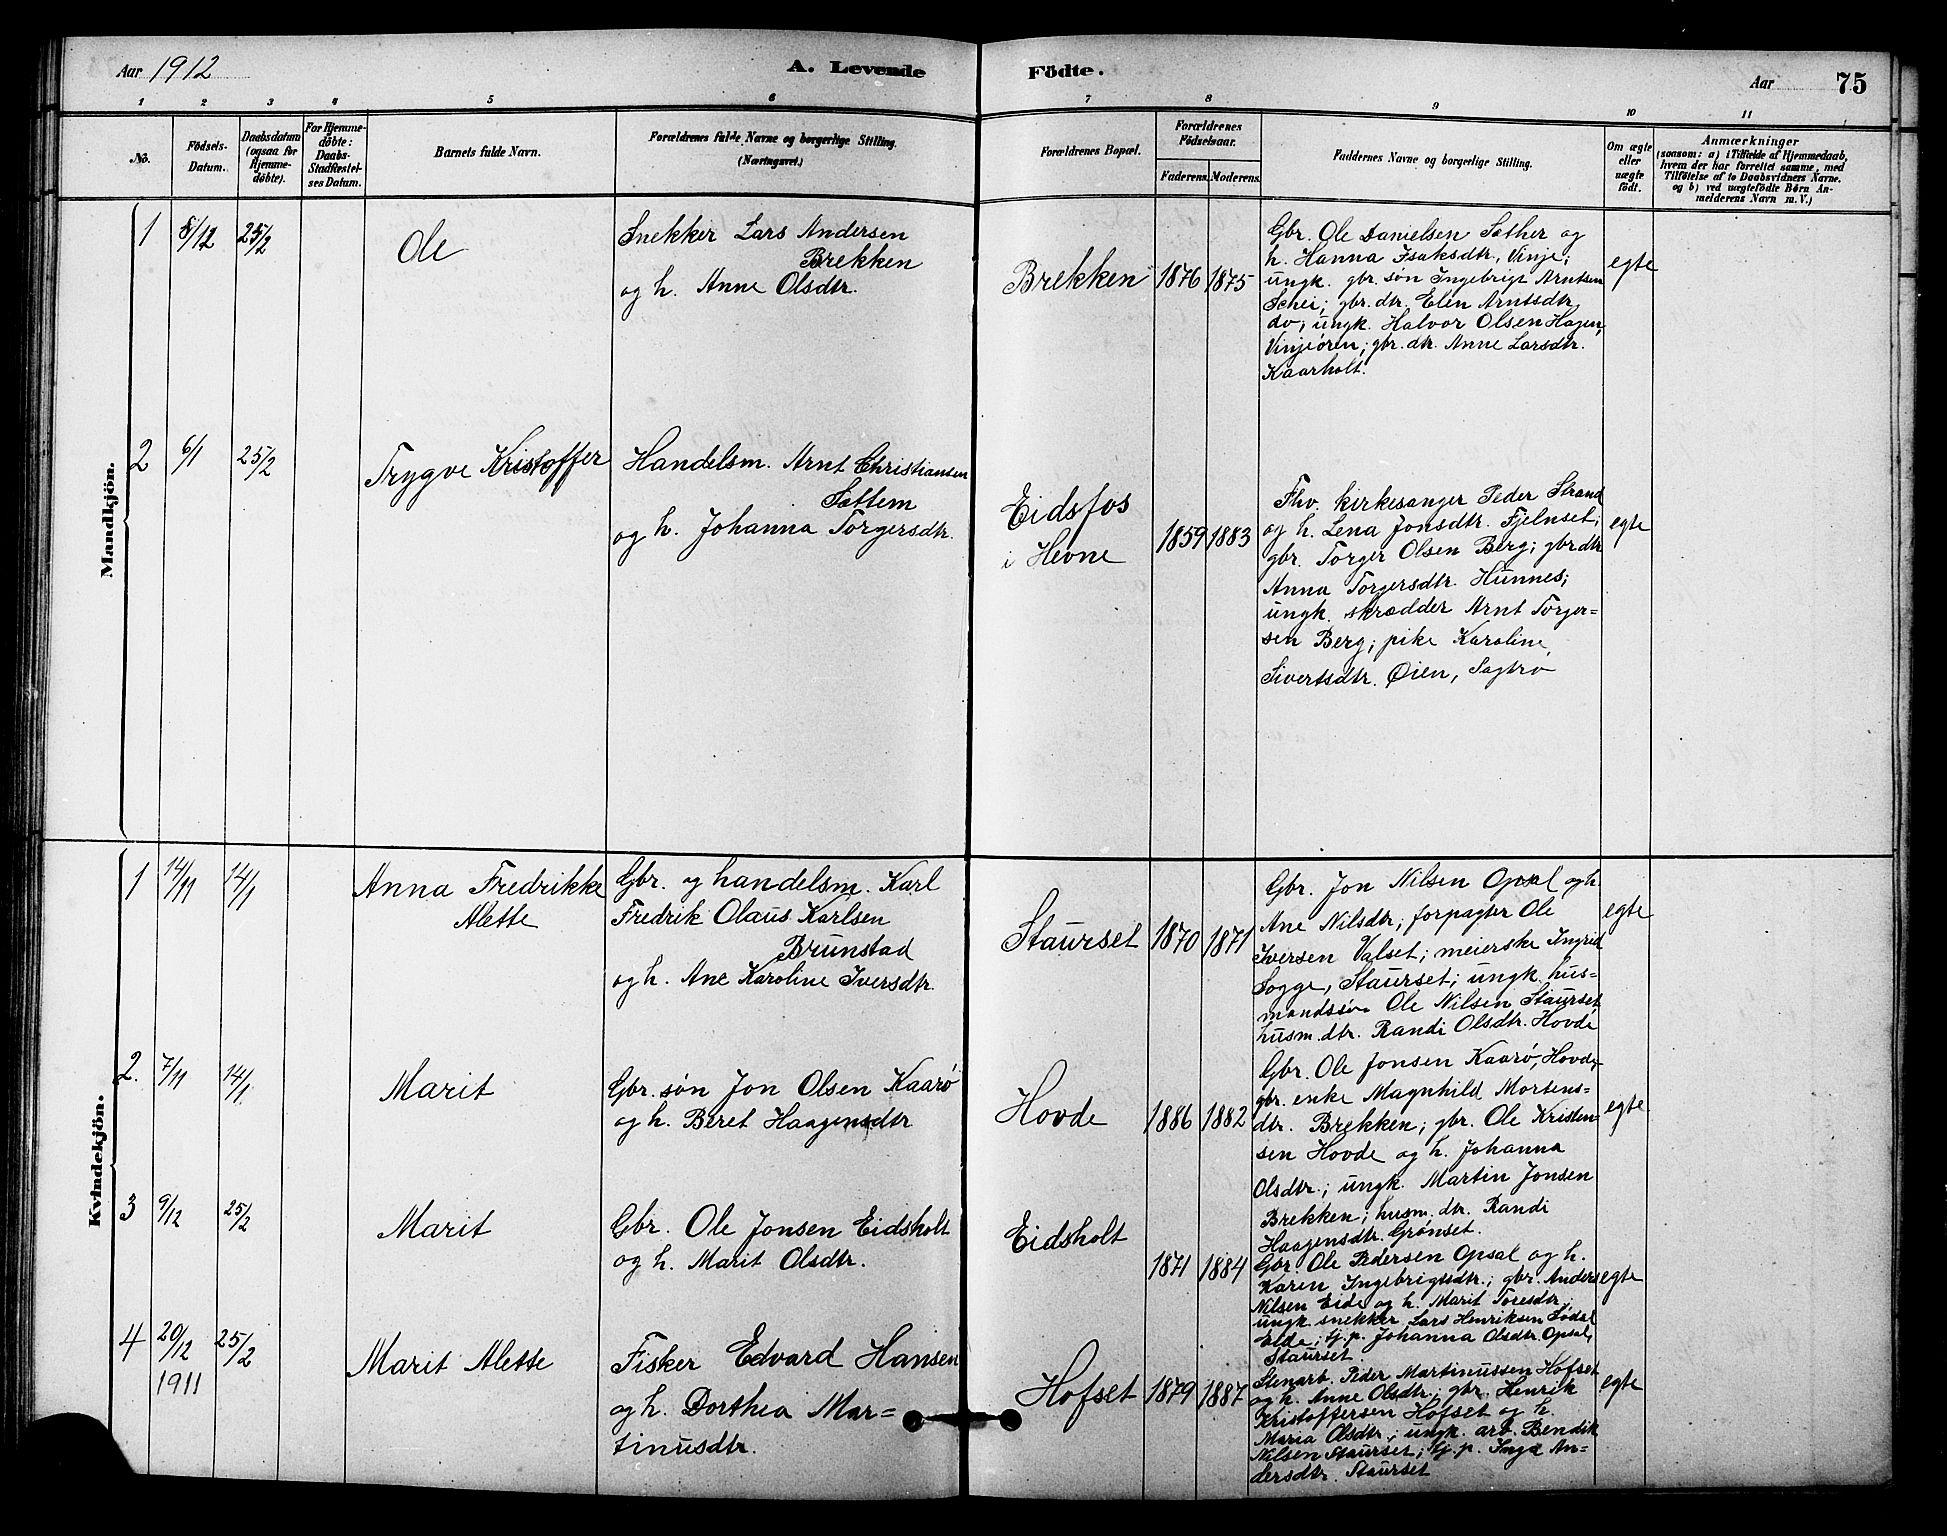 Aar 1912
A. Levende Födte.
Aar
75
1 2 3 4 5 6 7 8 9 10 11
No.
Födsels-
Datum.
Daabsdatum
(ogsaa for
Hjemme-
döbte).
For Hjemme-
döbte:
Daabs-
Stadfæstel-
ses Datum.
Barnets fulde Navn.
Forældrenes fulde Navne og borgerlige Stilling.
(Næringsvei.)
Forældrenes Bopæl.
Forældrenes
Födselsaar.
Faderens. Moderens.
Faddernes Navne og borgerlige Stilling.
Om ægte
eller
uægte
födt.
Anmærkninger
(saasom: a) i Tilfælde af Hjemmedaab,
hvem der har forrettet samme, med
Tilföielse af to Daabsvidners Navne.
og b) ved uægtefödte Börn An-
melderens Navn m. V.)
Mandkjön.
1
8/12
25/2
Ole
Snekker Lars Andersen
Brekken
og h. Anne Olsdtr.
Brekken
1876
1875
Gbr. Ole Danielsen Sæther og
h. Hanna Isaksdtr, Vinje;
ungk. gbr. søn Ingebrigt Arntsen
Schei; gbr. dtr. Elen Arntsdtr
do; ungk. Halvor Olsen Hagen,
Vinjeøren; gbr. dtr. Anne Larsdtr.
Kaarholt.
egte
2
6/1
25/2
Trygve Kristoffer
Handelsm. Arnt Christiansen
Sættem
og h. Johanna Torgersdtr.
Eidsfos
i Hevne
1859
1883
Fhv. kirkesanger Peder Strand
og h. Lena Jonsdtr. Fjelnset;
gbr. Torger Olsen Berg; gbr dtr
Anna Torgersdtr. Hunnes;
ungk. skrædder Arnt Torger=
sen Berg; pike Karoline
Sivertsdtr. Øien, Sagtrø
egte
Kvindekjön.
1
14/11
14/1
Anna Fredrikke
Alette
Gbr. og handelsm. Karl
Fredrik Olaus Karlsen
Brunstad
og h. Ane Karoline Iversdtr.
Staurset
1870
1871
Gbr. Jon Nilsen Opsal og h.
Ane Nilsdtr; forpagter Ole
Iversen Valset; meierske Ingrid
Sogge, Staurset; ungk. hus=
mandssøn Ole Nilsen Staurset
husm. dtr. Randi Olsdtr. Hovde
egte
2.
7/11
14/1
Marit
Gbr. søn Jon Olsen Kaarø
og h. Beret Haagensdtr
Hovde
1886
1882
Gbr. Ole Jonsen Kaarø, Hovde;
gbr. enke Magnhild Mortens-
dtr. Brekken; gbr. Ole Kristen=
sen Hovde og h. Johanna
Olsdtr.; ungk. Martin Jonsen
Brekken; husm. dtr. Randi
Haagensdtr. Grønset.
egte
3
9/12
25/2
Marit
Gbr. Ole Jonsen Eidsholt
og h. Marit Olsdtr.
Eidsholt
1871
1884
Gbr. Ole Pedersen Opsal og h.
Karen Ingebrigtsdtr.; gbr. Anders
Nilsen Eide og h. Marit Toresdtr;
ungk snekker Lars Henriksen Södal
Eide; tj. p. Johanna Olsdtr. Opsal,
Staurset.
egte
4
20/12
1911
25/2
Marit Alette
Fisker Edvard Hansen
og h. Dorthea Mar=
tinusdtr.
Hofset
1879
1887
Stenarb. Peder Martinussen Hofset
og h. Anne Olsdtr.; gbr. Henrik
Kristoffersen Hofset og h.
Maria Olsdtr.; ungk. arb. Bendik
Nilsen Staurset; tj. p. Inga An=
dersdtr. Staurset
egte